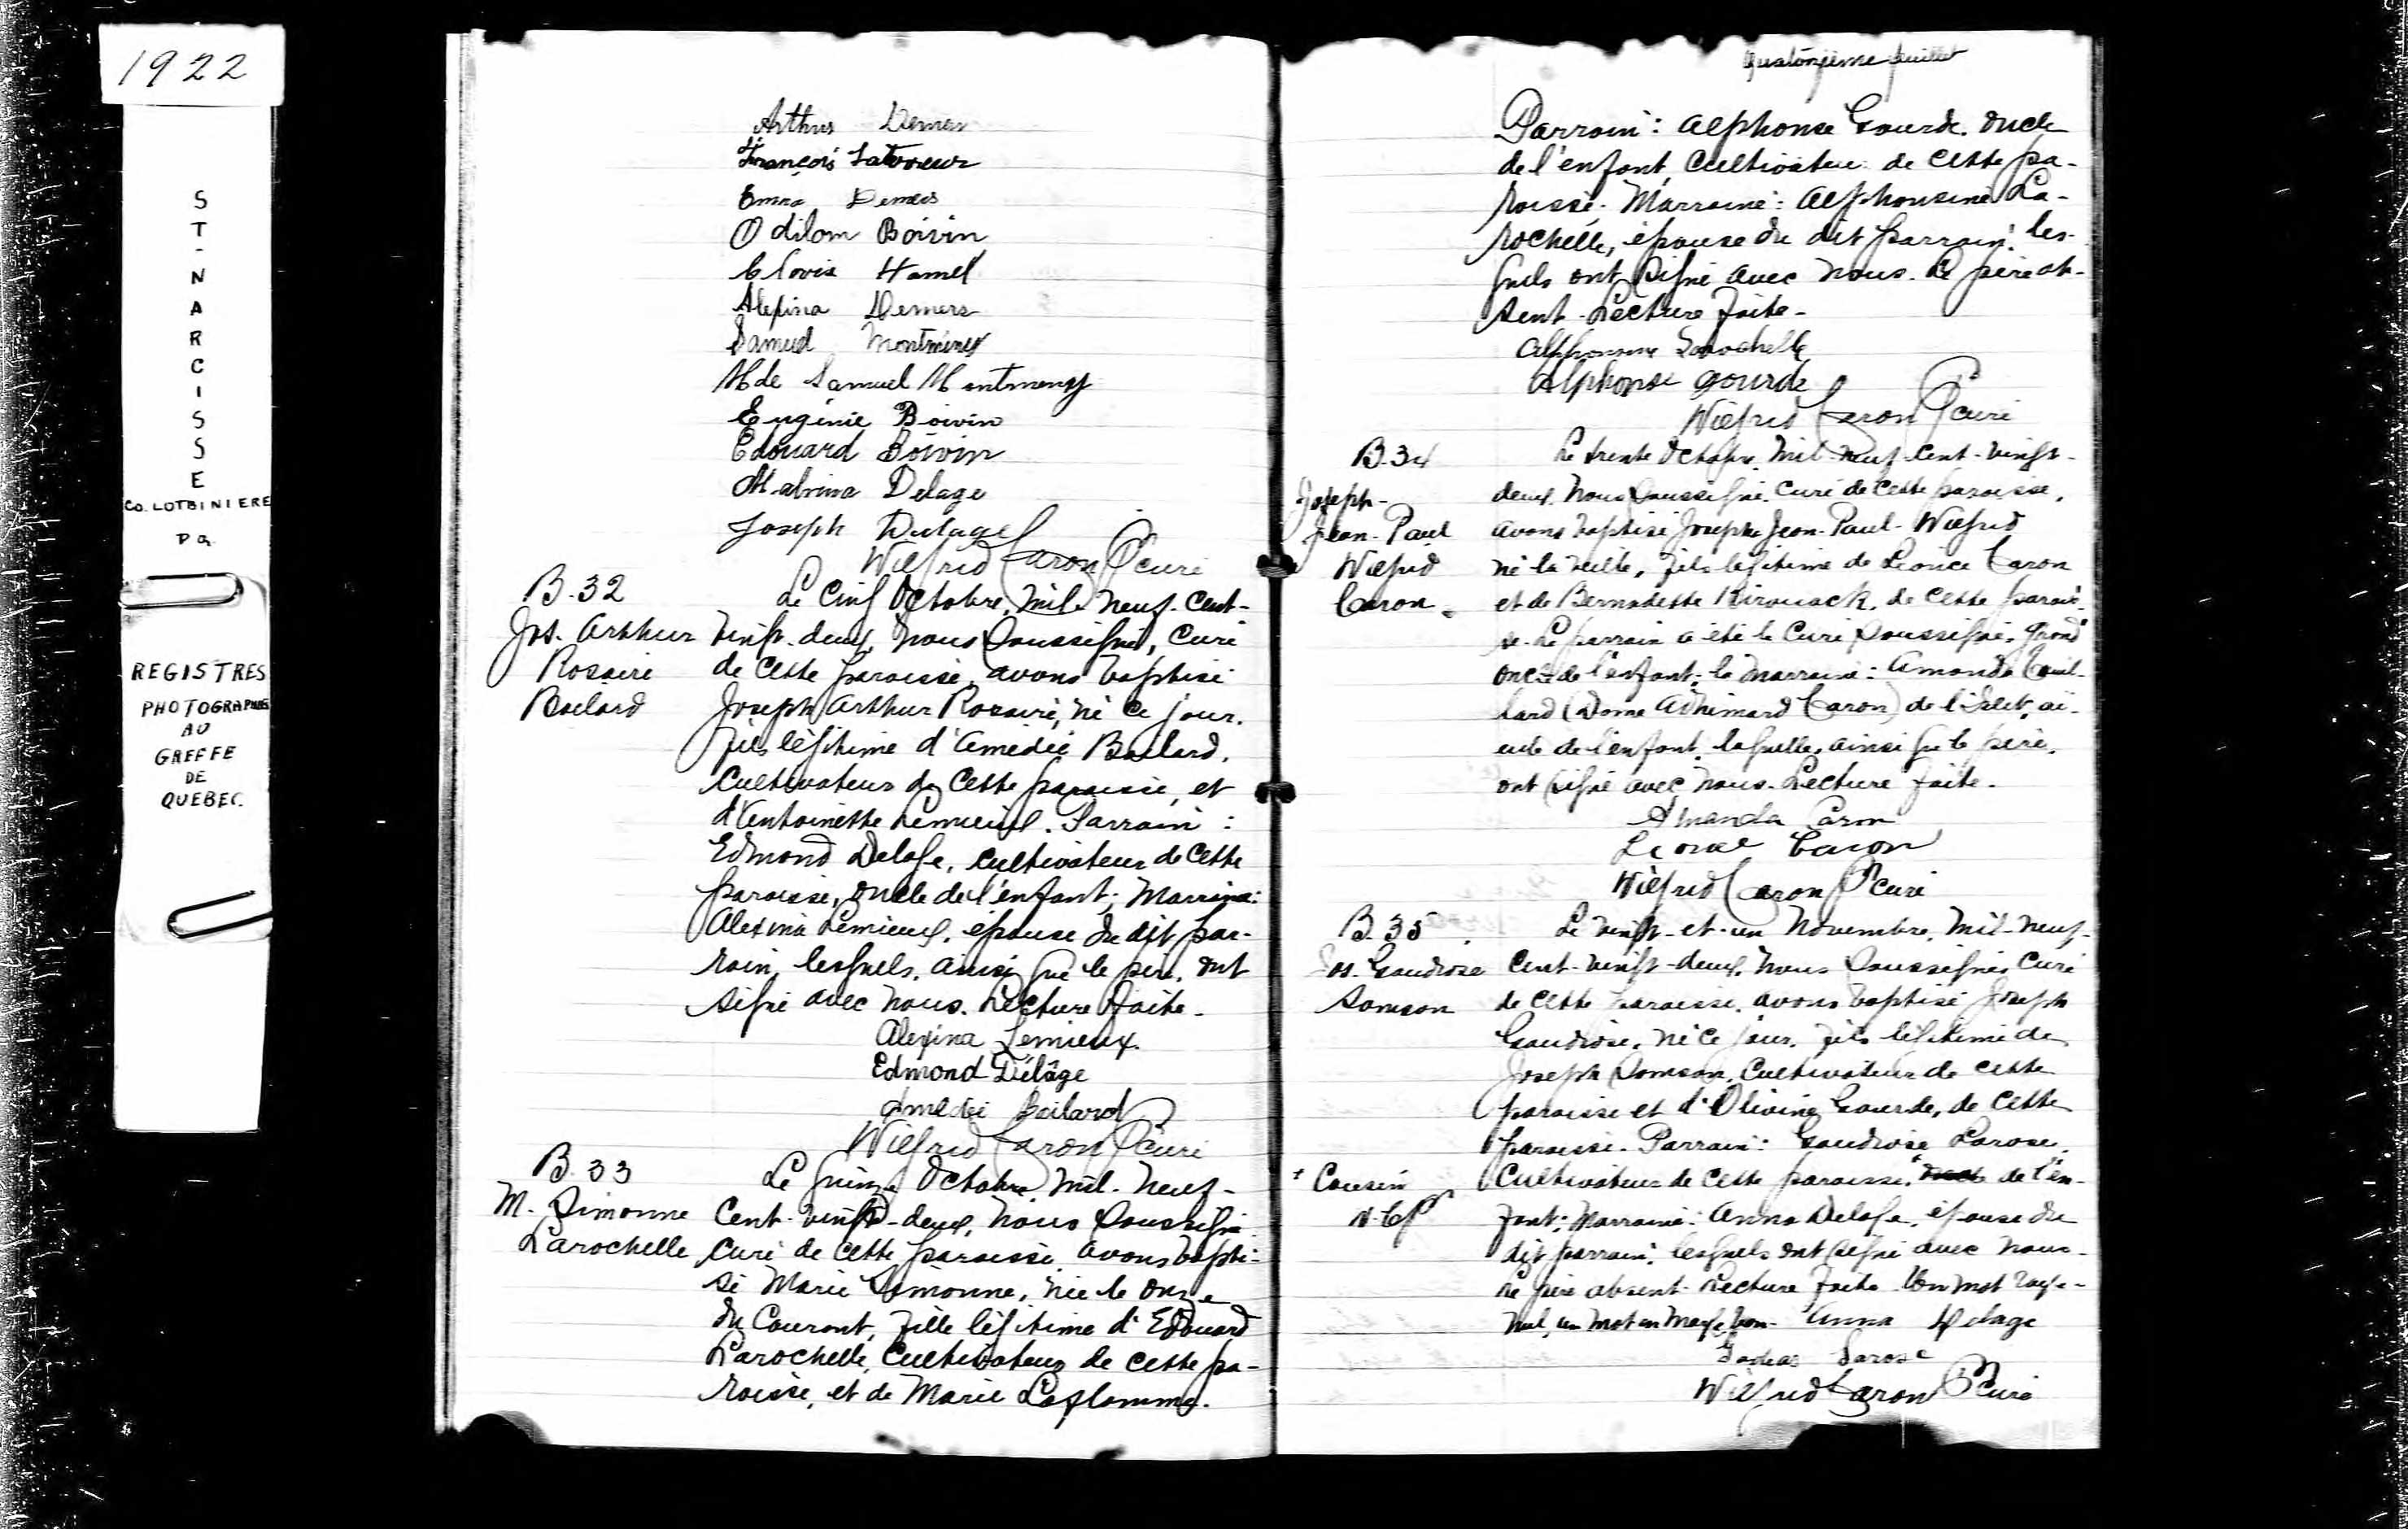 1922
ST-NARCISSE
CO. LOTBINIERE
P Q
REGISTRES
PHOTOGRAPHIES
AU
GREFFE
DE
QUEBEC.
Arthur Demers
François
Emma Demers
Odilon Boivin
Clovis Hamel
Alexina Demers
Samuel Montminy
Mde Samuel Montmeny
Eugénie Boivin
Edouard Boivin
Malvina Delage
Joseph Delage
Wilfrid Caron Ptre curé
B-32
Jos. Arthur
Rosaire
Boilard
Le cinq Octobre, mil neuf-cent-
vingt-deux, nous soussigné, curé
de cette paroisse, avons baptisé
Joseph Arthur Rosaire, né ce jour,
fils légitime d'Amédée Boilard,
cultivateur de cette paroisse, et
d'Antoinette Lemieux. Parrain :
Edmond Delage, cultivateur de cette
paroisse, oncle de l'enfant; Marraine:
Alexina Lemieux, épouse du dit par-
rain, lesquels, ainsi que le père, ont
signé avec nous. Lecture faite.
Alexina Lemieux.
Edmond Délage
Amédée Boilard
Wilfrid Caron Ptre curé
B-33
M. Simonne
Larochelle
Le quinze Octobre, mil-neuf-
cent-vingt-deux, nous soussigné
curé de cette paroisse, avons bapti-
sé Marie Simonne, née le onze
du courant, fille légitime d'Edouard
Larochelle, cultivateur de cette pa-
roisse, et de Marie Laflamme.
Quatorzième feuillet
Parrain: Alphonse Gourde, oncle
de l'enfant, cultivateur de cette pa-
roisse. Marraine: Alphonsine La-
rochelle, épouse du dit parrain, les-
quels ont signé avec nous. Le père ab-
sent. Lecture faite.
Alphonsine Larochelle
Alphonse Gourde
Wilfrid Caron Ptre curé
B-34
Joseph-
Jean-Paul
Wilfrid
Caron.
Le trente Octobre, mil-neuf-cent-vingt-
deux, nous soussigné, curé de cette paroisse,
avons baptisé Joseph Jean-Paul-Wilfrid
né la veille, fils légitime de Léonce Caron
et de Bernadette Kirouack, de cette parois-
se. Le parrain a été le curé soussigné, grand
oncle de l'enfant; la marraine: Amanda Couil-
lard (Dame Adhémard Caron) de l'Islet, aï-
eule de l'enfant, laquelle, ainsi que le père,
ont signé avec nous. Lecture faite.
Amanda Caron
Léonce Caron
Wilfrid Caron Ptre curé
B-35
Jos. Gaudiose
Samson
Le vingt-et-un Novembre, mil-neuf-
cent-vingt-deux, nous soussigné, curé
de cette paroisse, avons baptisé Joseph
Gaudiose, né ce jour, fils légitime de
Joseph Samson, cultivateur de cette
paroisse et d'Olivine Gourde, de cette
paroisse. Parrain: Gaudiose Larose,
cultivateur de cette paroisse, + oncle de l'en-
+ Cousin
W-C Ptre
fant; Marraine: Anna Delage, épouse du
dit parrain, lesquels ont signé avec nous.
Le père absent. Lecture faite. Un mot rayé
nul, un mot en marge bon. Anna Delage
Larose
Wilfrid Caron Ptre Curé